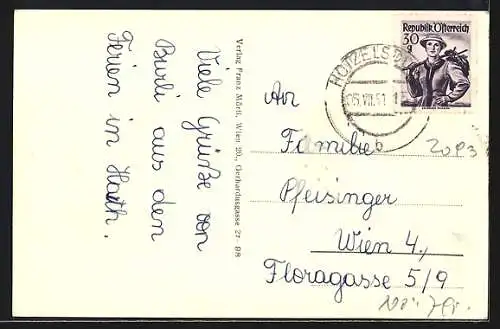 Viele Grüße von
Burli aus den
Ferien in Harth.
Verlag Franz Mörtl, Wien 20., Gerhardusgasse 27 88
Republik Österreich
30
g
HÖTZELSD
An
Familie
Pfeisinger
Wien 4.,
Floragasse 5/9